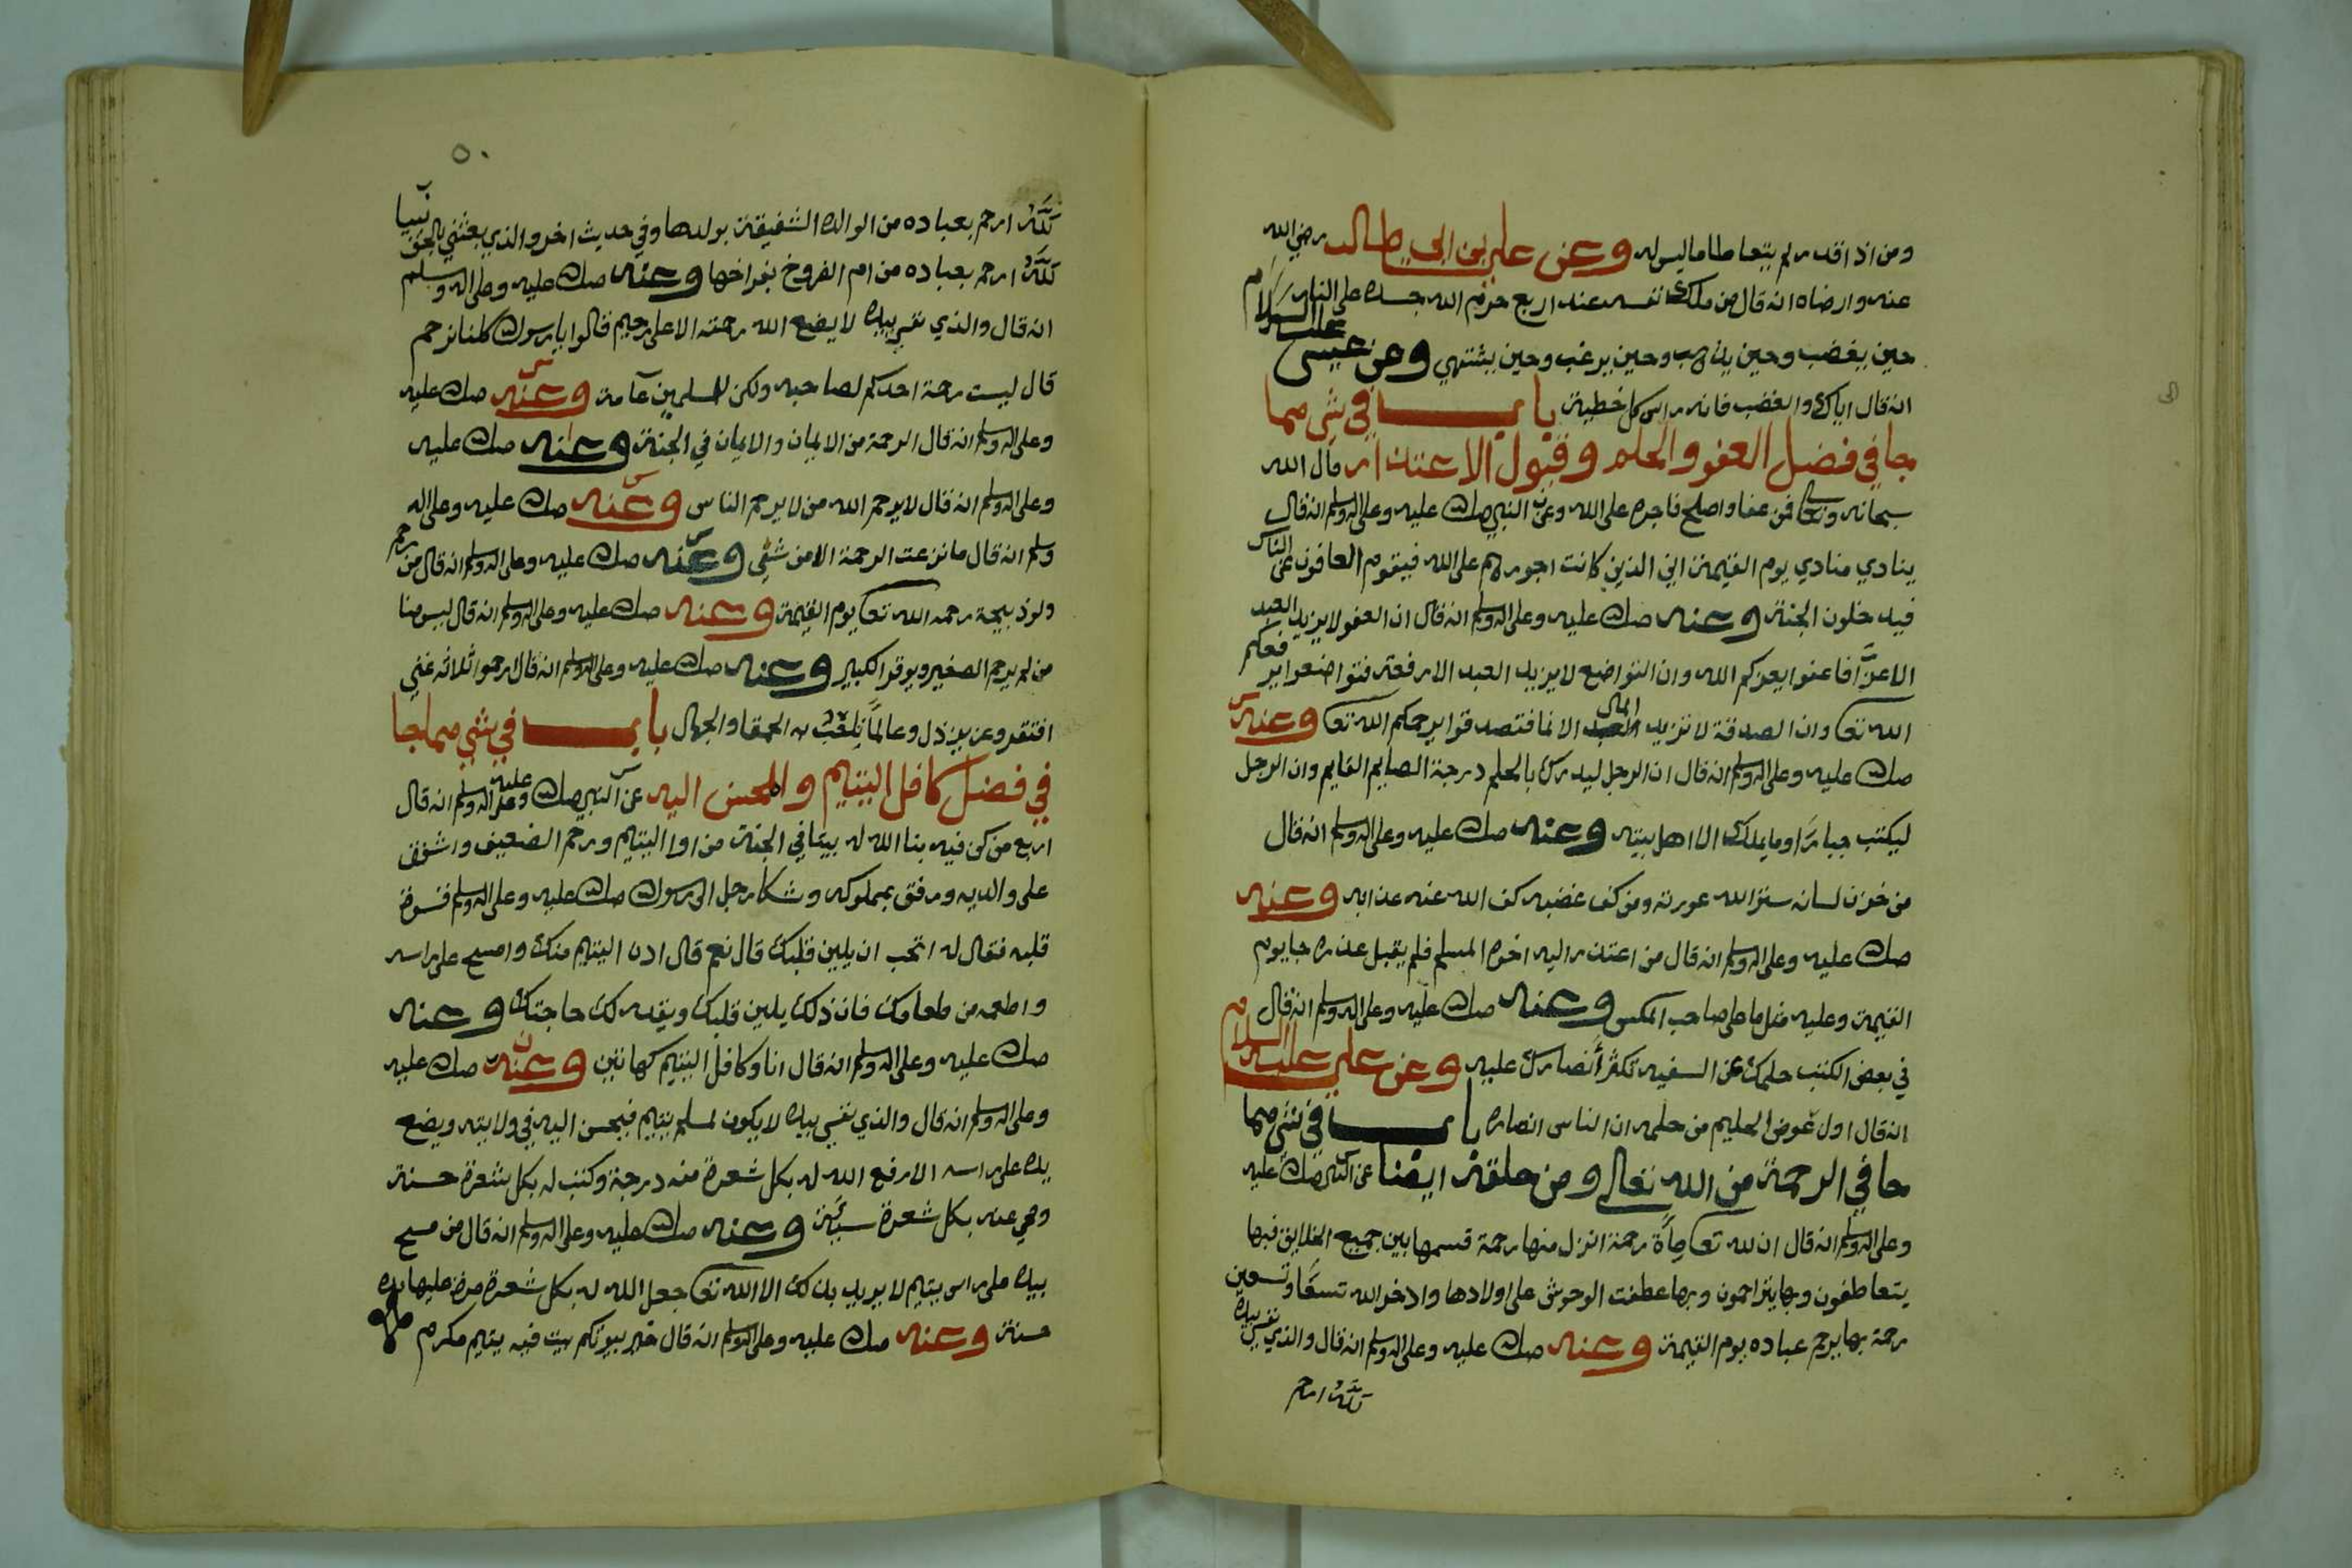 ومن اذا قدر لم يتعاطا ما ليس له وعن علي بن ابي طالب رضي الله
عنه وارضاه انه قال من ملك نفسه عند اربع حرم الله جسده على النار
حين يغضب وحين يرهب وحين يرغب وحين يشتهي وعن عيسى عليه السلام
انه قال اياك والغضب فانه راس كل خطية باب في شي مما
جا في فضل العفو والحلم وقبول الاعتذار قال الله
سبحانه وتعا فمن عفا واصلح فاجره على الله وعن النبي صلى الله عليه وعلى اله وسلم انه قال
ينادي منادي يوم القيمة اين الذين كانت اجورهم على الله فيقوم العافون عن الناس
فيدخلون الجنة وعنه صلى الله عليه وعلى اله وسلم انه قال ان العفو لا يزيد العبد
الا عزّا فاعفوا يعزكم الله وان التواضع لا يزيد العبد الا رفعة فتواضعوا يرفعكم
الله تعا وان الصدقة لا تزيد المال الا نما فتصدقوا يرحمكم الله تعا وعنه
صلى الله عليه وعلى اله وسلم انه قال ان الرجل ليدرك بالحلم درجة الصايم القايم وان الرجل
ليكتب جبارًا وما يملك الا اهل بيته وعنه صلى الله عليه وعلى اله وسلم انه قال
من خزن لسانه ستر الله عورته ومن كف غضبه كف الله عنه عذابه وعنه
صلى الله عليه وعلى اله وسلم انه قال من اعتذر اليه اخوه المسلم فلم يقبل عذره جا يوم
القيمة وعليه مثل ما على صاحب المكس وعنه صلى الله عليه وعلى اله وسلم انه قال
في بعض الكتب حلمك عن السفيه تكثر أنصارك عليه وعن علي عليه السلام
انه قال اول عوض الحليم من حلمه ان الناس انصاره باب في شي مما
جا في الرحمة من الله تعالى ومن خلقه ايضا عن النبي صلى الله عليه
وعلى اله وسلم انه قال ان لله تعا مأة رحمة انزل منها رحمة قسمها بين جميع الخلايق فبها
يتعاطفون وبها يتراحمون وبها عطفت الوحوش على اولادها وادخر الله تسعًا وتسعين
رحمة بها يرحم عباده يوم القيمة وعنه صلى الله عليه وعلى اله وسلم انه قال والذي نفسي بيده
للّه ارحم
٥٠
للّه ارحم بعباده من الوالده الشفيقة بولدها وفي حديث اخر والذي بعثني بالحق نبيا
للّه ارحم بعباده من ام الفروخ بفراخها وعنه صلى الله عليه وعلى اله وسلم
انه قال والذي نفسي بيده لا يضع الله رحمته الا على رحيم قالوا يا رسول الله كلنا نرحم
قال ليست رحمة احدكم لصاحبه ولكن للمسلمين عآمة وعنه صلى الله عليه
وعلى اله وسلم انه قال الرحمة من الايمان والايمان في الجنة وعنه صلى الله عليه
وعلى اله وسلم انه قال لا يرحم الله من لا يرحم الناس وعنه صلى الله عليه وعلى اله
وسلم انه قال ما نزعت الرحمة الا من شقي وعنه صلى الله عليه وعلى اله وسلم انه قال من رحم
ولو ذبيحة رحمه الله تعا يوم القيمة وعنه صلى الله عليه وعلى اله وسلم انه قال ليس منا
من لم يرحم الصغير ويوقر الكبير وعنه صلى الله عليه وعلى اله وسلم انه قال ارحموا ثلاثه غني
افتقر وعزيز ذل وعالمًا تلعّب به الحمقا والجهال باب في شي مما جا
في فضل كافل اليتيم والمحسن اليه عن النبي صلى الله عليه وعلى اله وسلم انه قال
اربع من كن فيه بنا الله له بيتا في الجنة من اوا اليتيم ورحم الضعيف واشفق
على والديه ورفق بمملوكه وشكا رجل الى رسول الله صلى الله عليه وعلى اله وسلم قسوة
قلبه فقال له اتحب ان يلين قلبك قال نعم قال ادن اليتيم منك وامسح على راسه
واطعمه من طعامك فان ذلك يلين قلبك ويقدر لك حاجتك وعنه
صلى الله عليه وعلى اله وسلم انه قال انا وكافل اليتيم كهاتين وعنه صلى الله عليه
وعلى اله وسلم انه قال والذي نفسي بيده لا يكون لمسلم يتيم فيحسن اليه في ولايته ويضع
يده على راسه الا رفع الله له بكل شعرة منه درجة وكتب له بكل شعرة حسنة
ومحي عنه بكل شعرة سيئة وعنه صلى الله عليه وعلى اله وسلم انه قال من مسح
بيده على راس يتيم لا يريد بذلك الا الله تعا جعل الله له بكل شعرة مرة عليها يده
حسنة وعنه صلى الله عليه وعلى اله وسلم انه قال خير بيوتكم بيت فيه يتيم مكرم